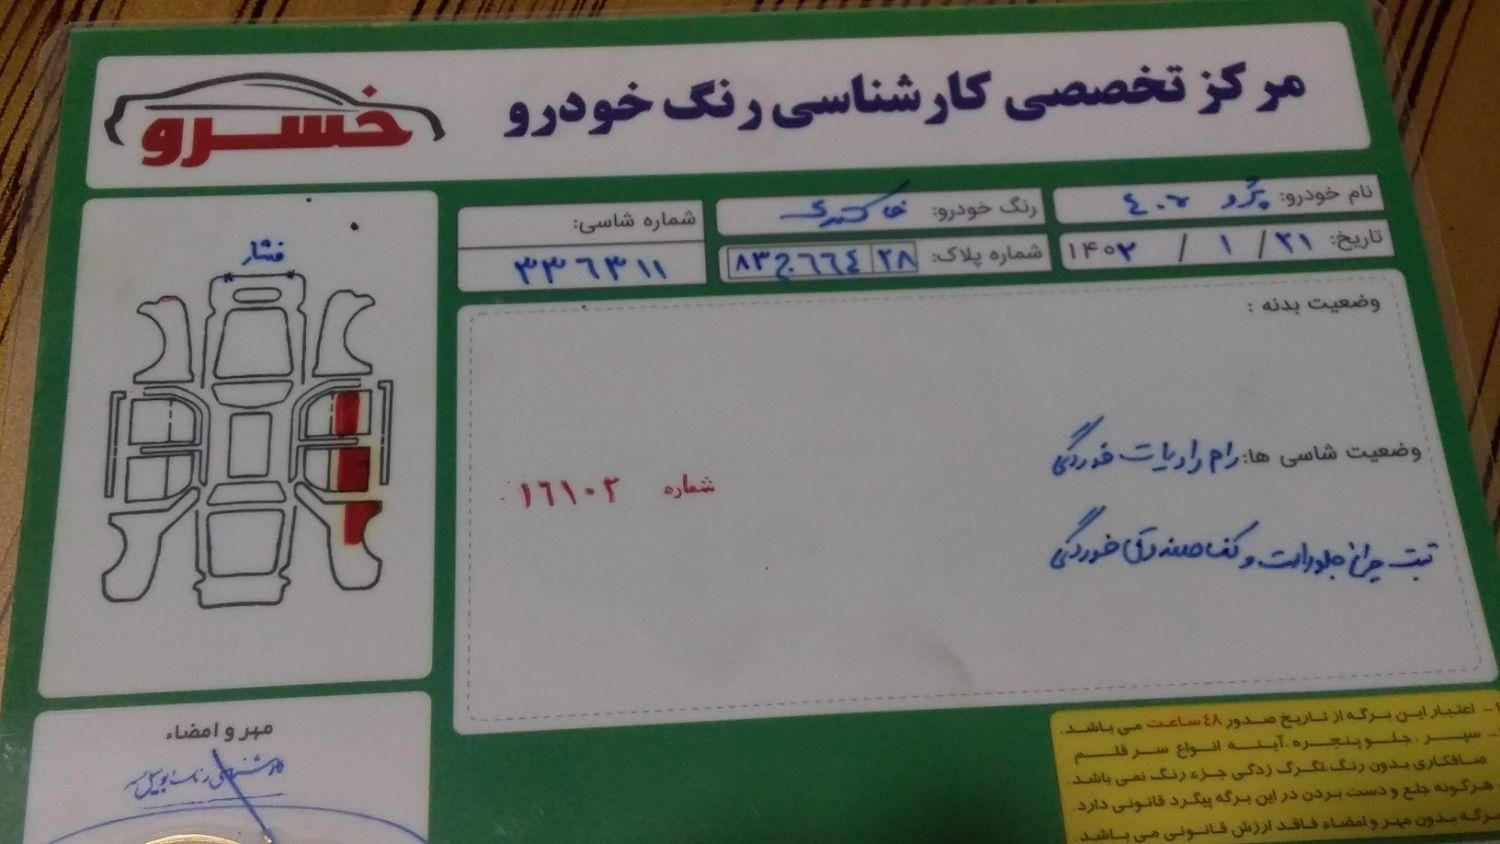 مرکز تخصصی کارشناسی رنگ خودرو
خسرو
نام خودرو: پژو ۴۰۵
رنگ خودرو: خاکستری
شماره شاسی:
تاریخ: ۲۱ / ۱ / ۱۴۰۲
شماره پلاک: ۲۸ ۸۳ج۶۶۴
۳۳۶۳۱۱
فشار
وضعیت بدنه :
وضعیت شاسی ها: رام رادیات خوردگی
شماره ۱۶۱۰۲
تبت چراغ جلو راست و کف صندوق خوردگی
مهر و امضاء
کارشناسی رنگ
- اعتبار این برگه از تاریخ صدور ۴۸ ساعت می باشد.
- سپر، جلو پنجره، آینه انواع سر قلم
صافکاری بدون رنگ، تگرگ زدگی جزء رنگ نمی باشد.
هرگونه جلع و دست بردن در این برگه پیگرد قانونی دارد.
برگه بدون مهر و امضاء فاقد ارزش قانونی می باشد.